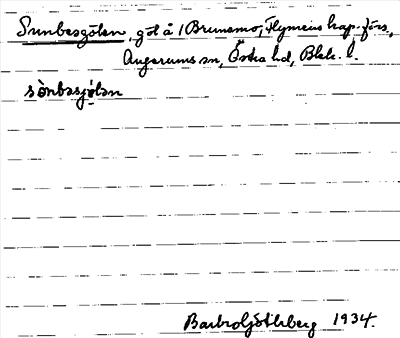 Sunbasgölen, göl å 1 Brunamo, Flymens kap.förs.,
Augerums sn, Östra hd, Blek. l.
sònbasjö̀lan
Barbro Ljöthberg 1934.